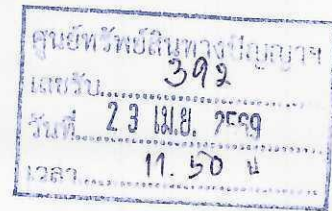 ศูนย์ทรัพย์สินทางปัญญาฯ
เลขรับ 392
วันที่ 23 เม.ย. 2569
เวลา 11.50 น